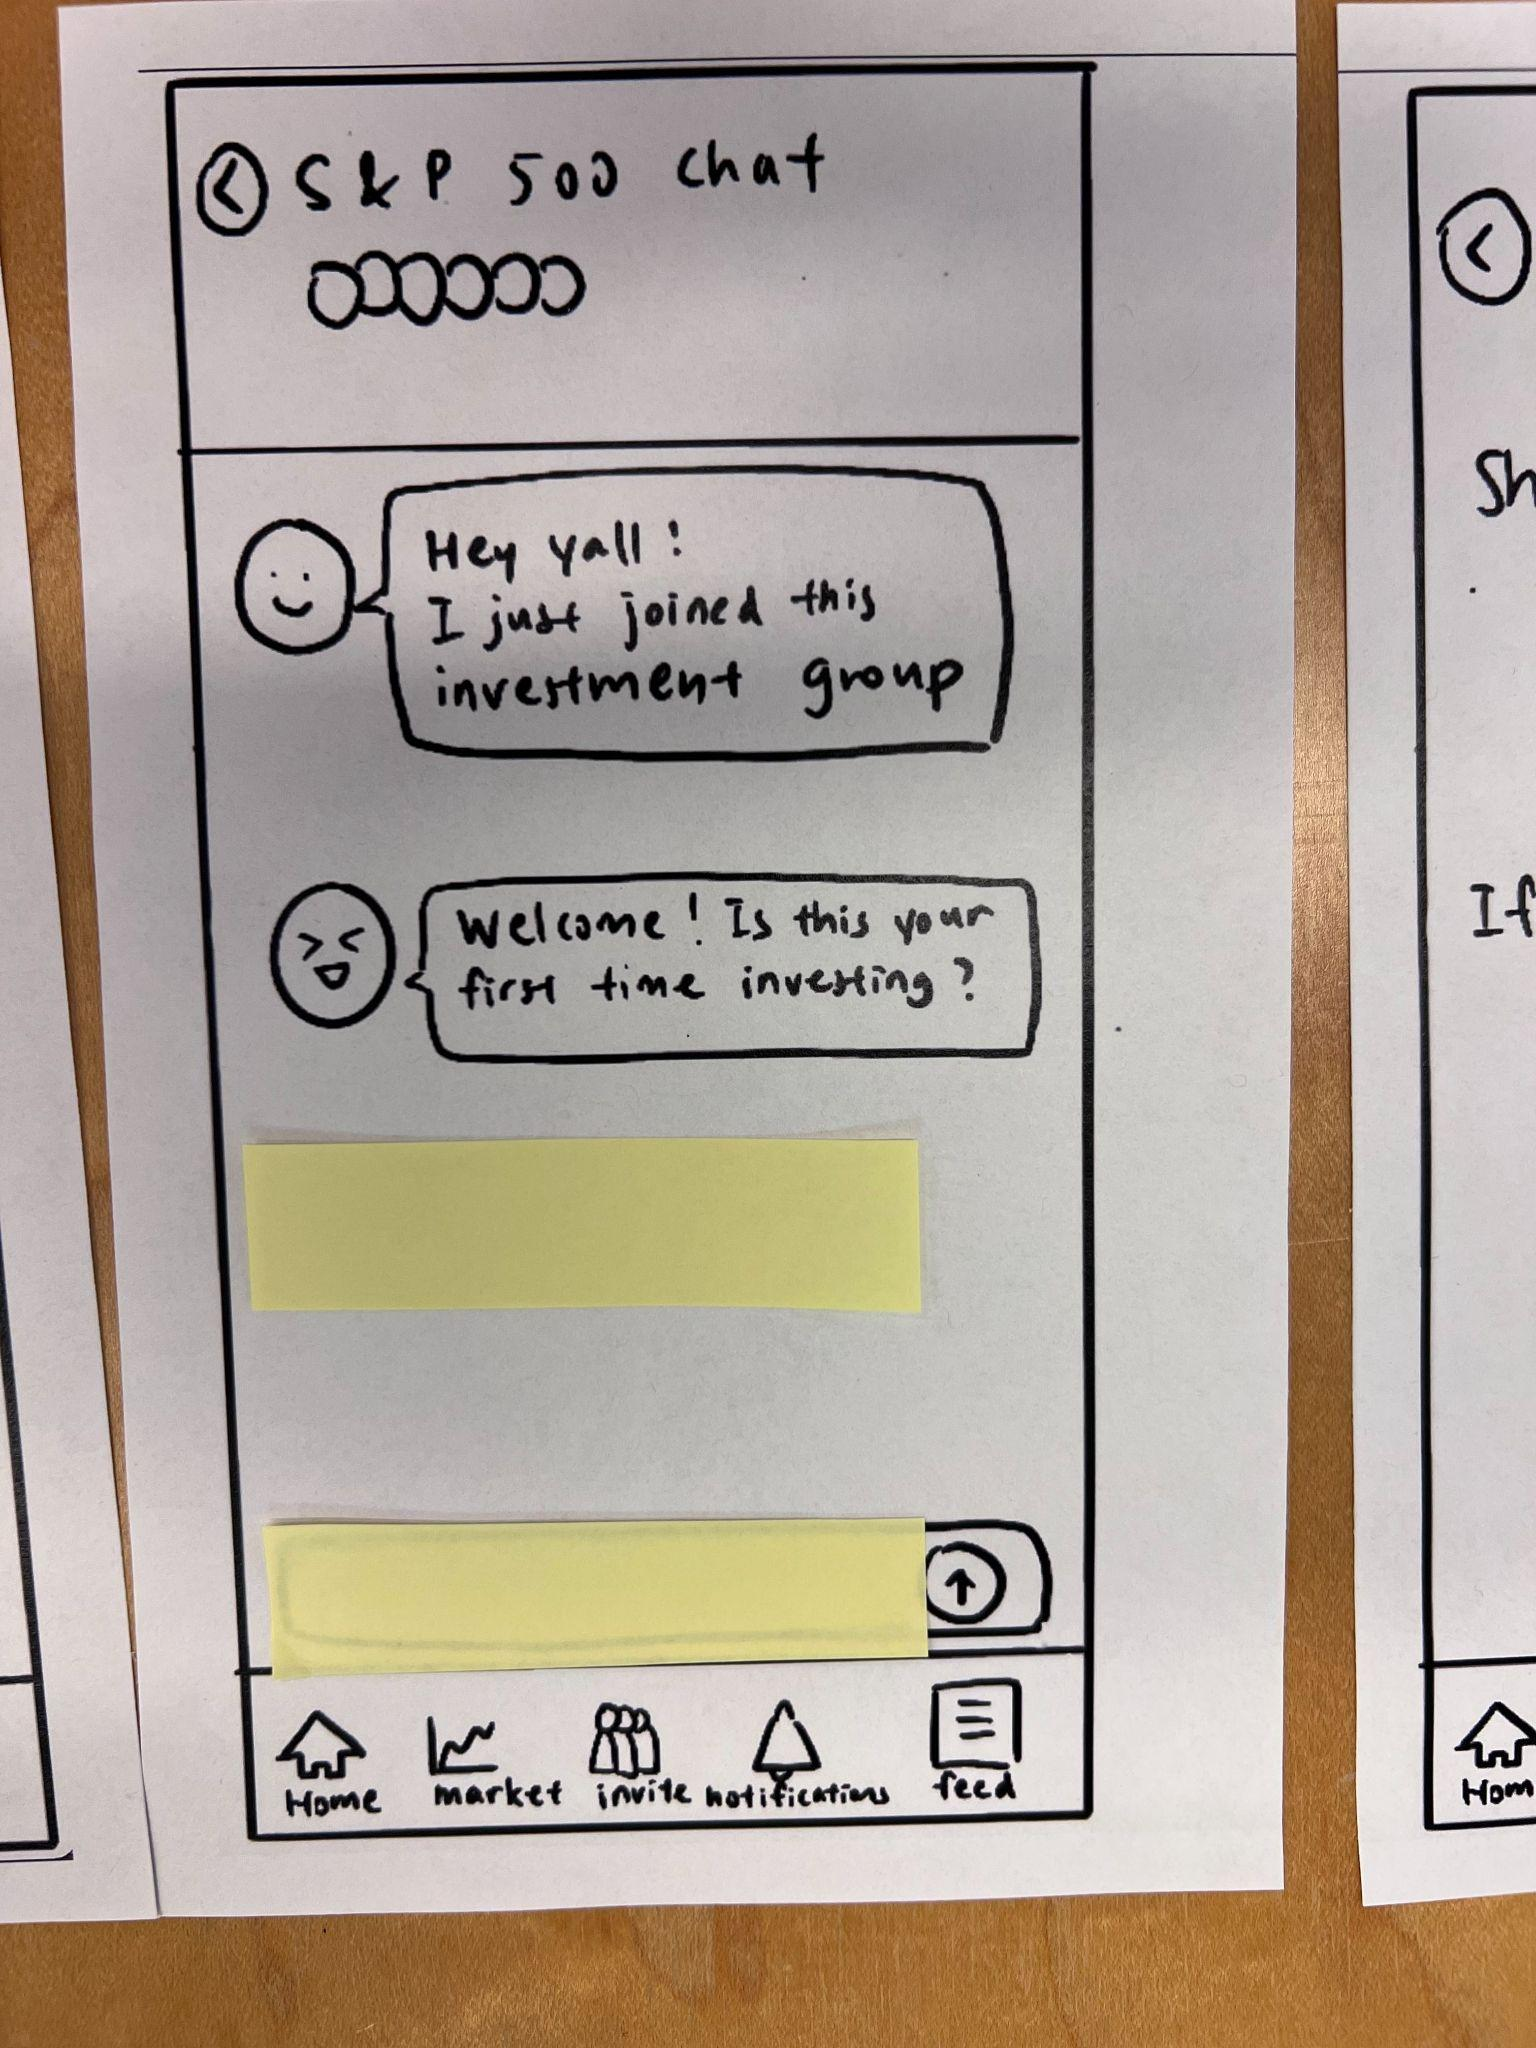 S & P 500 chat
Hey yall!
I just joined this
investment group
Welcome! Is this your
first time investing?
Home
market
invite
notifications
feed
Sh
If
Hom